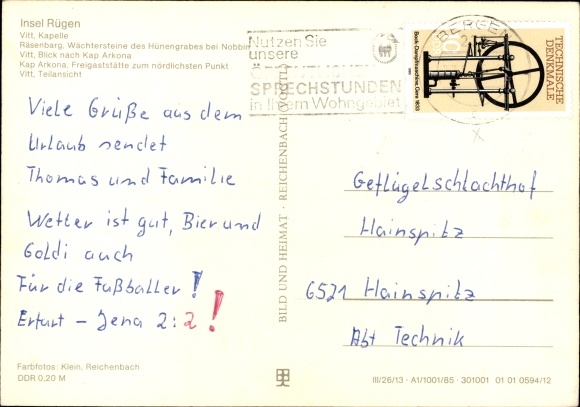 Insel Rügen
Vitt, Kapelle
Räsenbarg, Wächtersteine des Hünengrabes bei Nobbin
Vitt, Blick nach Kap Arkona
Kap Arkona, Freigaststätte zum nördlichsten Punkt
Vitt, Teilansicht
Nutzen Sie
unsere
SPRECHSTUNDEN
in Ihrem Wohngebiet
BERGEN
10
TECHNISCHE
DENKMALE
Bock-Dampfmaschine, Gera 1833
Viele Grüße aus dem
Urlaub sendet
Thomas und Familie
Wetter ist gut, Bier und
Goldi auch
Für die Fußballer!
Erfurt – Jena 2:2!
BILD UND HEIMAT · REICHENBACH (VOGTL)
Geflügelschlachthof
Hainspitz
6521 Hainspitz
Abt Technik
Farbfotos: Klein, Reichenbach
DDR 0,20 M
III/26/13 · A1/1001/85 · 301001 01 01 0594/12